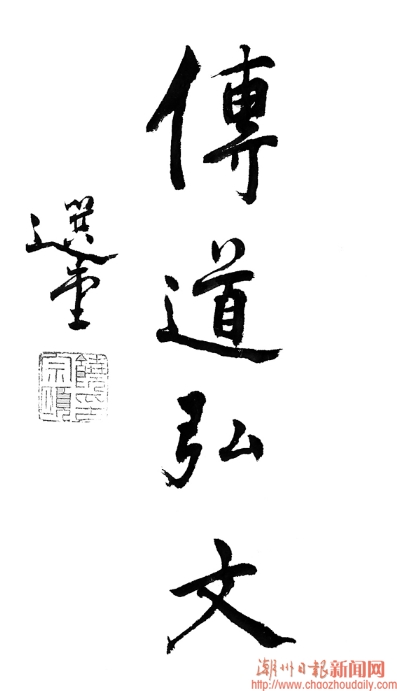 傳道弘文
選堂
饒氏宗頤
潮州日報新闻网
http://www.chaozhoudaily.com